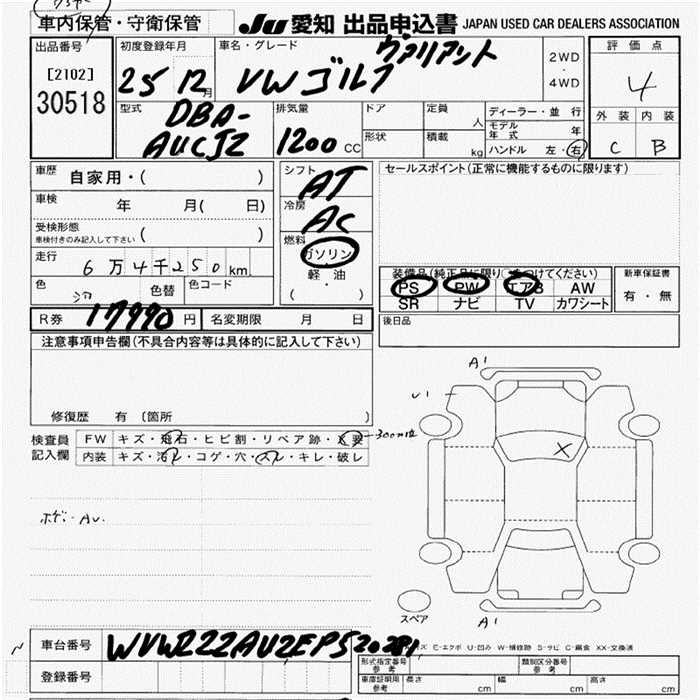 車内保管・守衛保管
JU 愛知 出品申込書 JAPAN USED CAR DEALERS ASSOCIATION
出品番号
[2102]
30518
初度登録年月
25 12 月
車名・グレード
VWゴルフ ヴァリアント
2WD
・
4WD
評価点
4
外装 内装
C B
型式
DBA-
AUCJZ
排気量
1200 CC
ドア
形状
定員 人
積載 kg
ディーラー・並行
モデル年式 年
ハンドル 左・右
車歴 自家用・( )
車検 年 月( 日)
受検形態
車検付きのみ記入して下さい ( )
走行
6万4千250 km
色 色替 色コード
シフト
AT
冷房
AC
燃料
ガソリン
軽・油
( ・ )
セールスポイント(正常に機能するものに限ります)
装備品(純正品に限り○をつけてください)
PS PW エアB AW
SR ナビ TV カワシート
新車保証書
有・無
R券 17990 円 名変期限 月 日
後日品
注意事項申告欄(不具合内容等は具体的に記入して下さい)
修復歴 有 〔箇所 〕
検査員
記入欄
FW キズ・飛石・ヒビ割・リペア跡・X要
300m位
内装 キズ・汚れ・コゲ・穴・スレ・キレ・破レ
ボデー AU.
A1
U1
X
スペア
A1
車台番号 WVWZZZAUZEP520281
登録番号
E-エクボ U-凹み W-補修跡 S-サビ C-腐食 XX-交換済
型式指定番号
参考
類別区分番号
参考
車庫証明用
参考
長さ cm 幅 cm 高さ cm